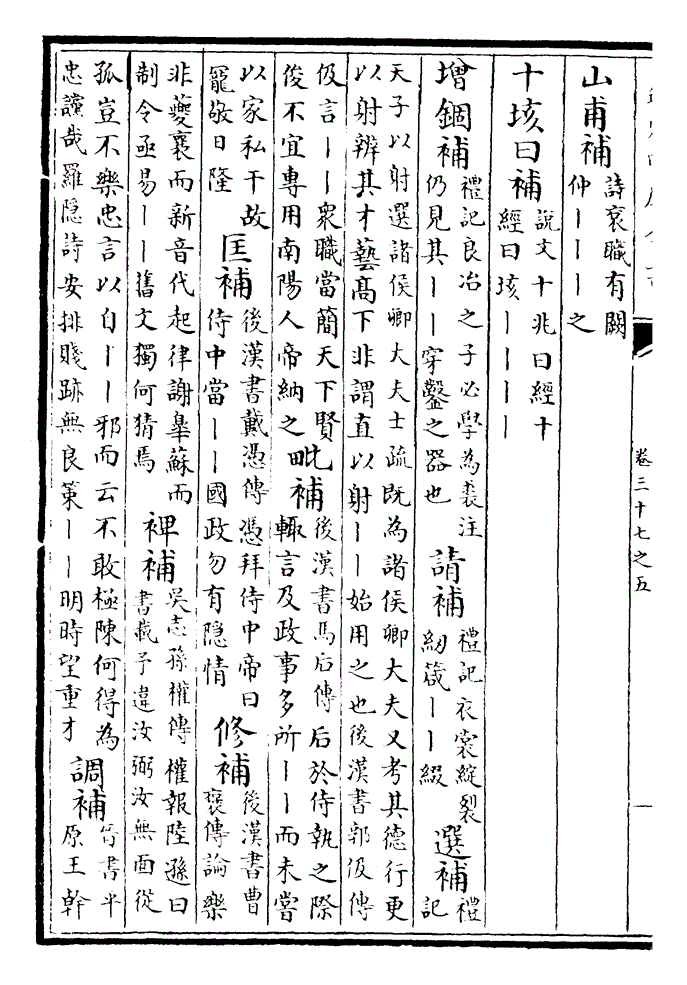 卷三十七之五
山甫補
詩衮職有闕
仲丨丨丨之
十垓曰補
說文十兆曰經十
經曰垓丨丨丨丨
增錮補
禮記良冶之子必學為裘注
仍見其丨丨穿鑿之器也
請補
禮記衣裳綻裂
紉箴丨丨綴
選補
禮
記
天子以射選諸侯卿大夫士疏既為諸侯卿大夫又考其德行更
以射辨其才藝高下非謂直以射丨丨始用之也後漢書郭伋傳
伋言丨丨衆職當簡天下賢
俊不宜專用南陽人帝納之
毗補
後漢書馬后傳后於侍執之際
輒言及政事多所丨丨而未嘗
以家私干故
寵敬日隆
匡補
後漢書戴憑傳憑拜侍中帝曰
侍中當丨丨國政勿有隱情
修補
後漢書曹
褒傳論樂
非夔襄而新音代起律謝臯蘇而
制令亟易丨丨舊文獨何猜焉
裨補
吳志孫權傳權報陸遜曰
書載予違汝弼汝無面從
孤豈不樂忠言以自丨丨邪而云不敢極陳何得為
忠讜哉羅隱詩安排賤跡無良策丨丨明時望重才
調補
晉書平
原王幹